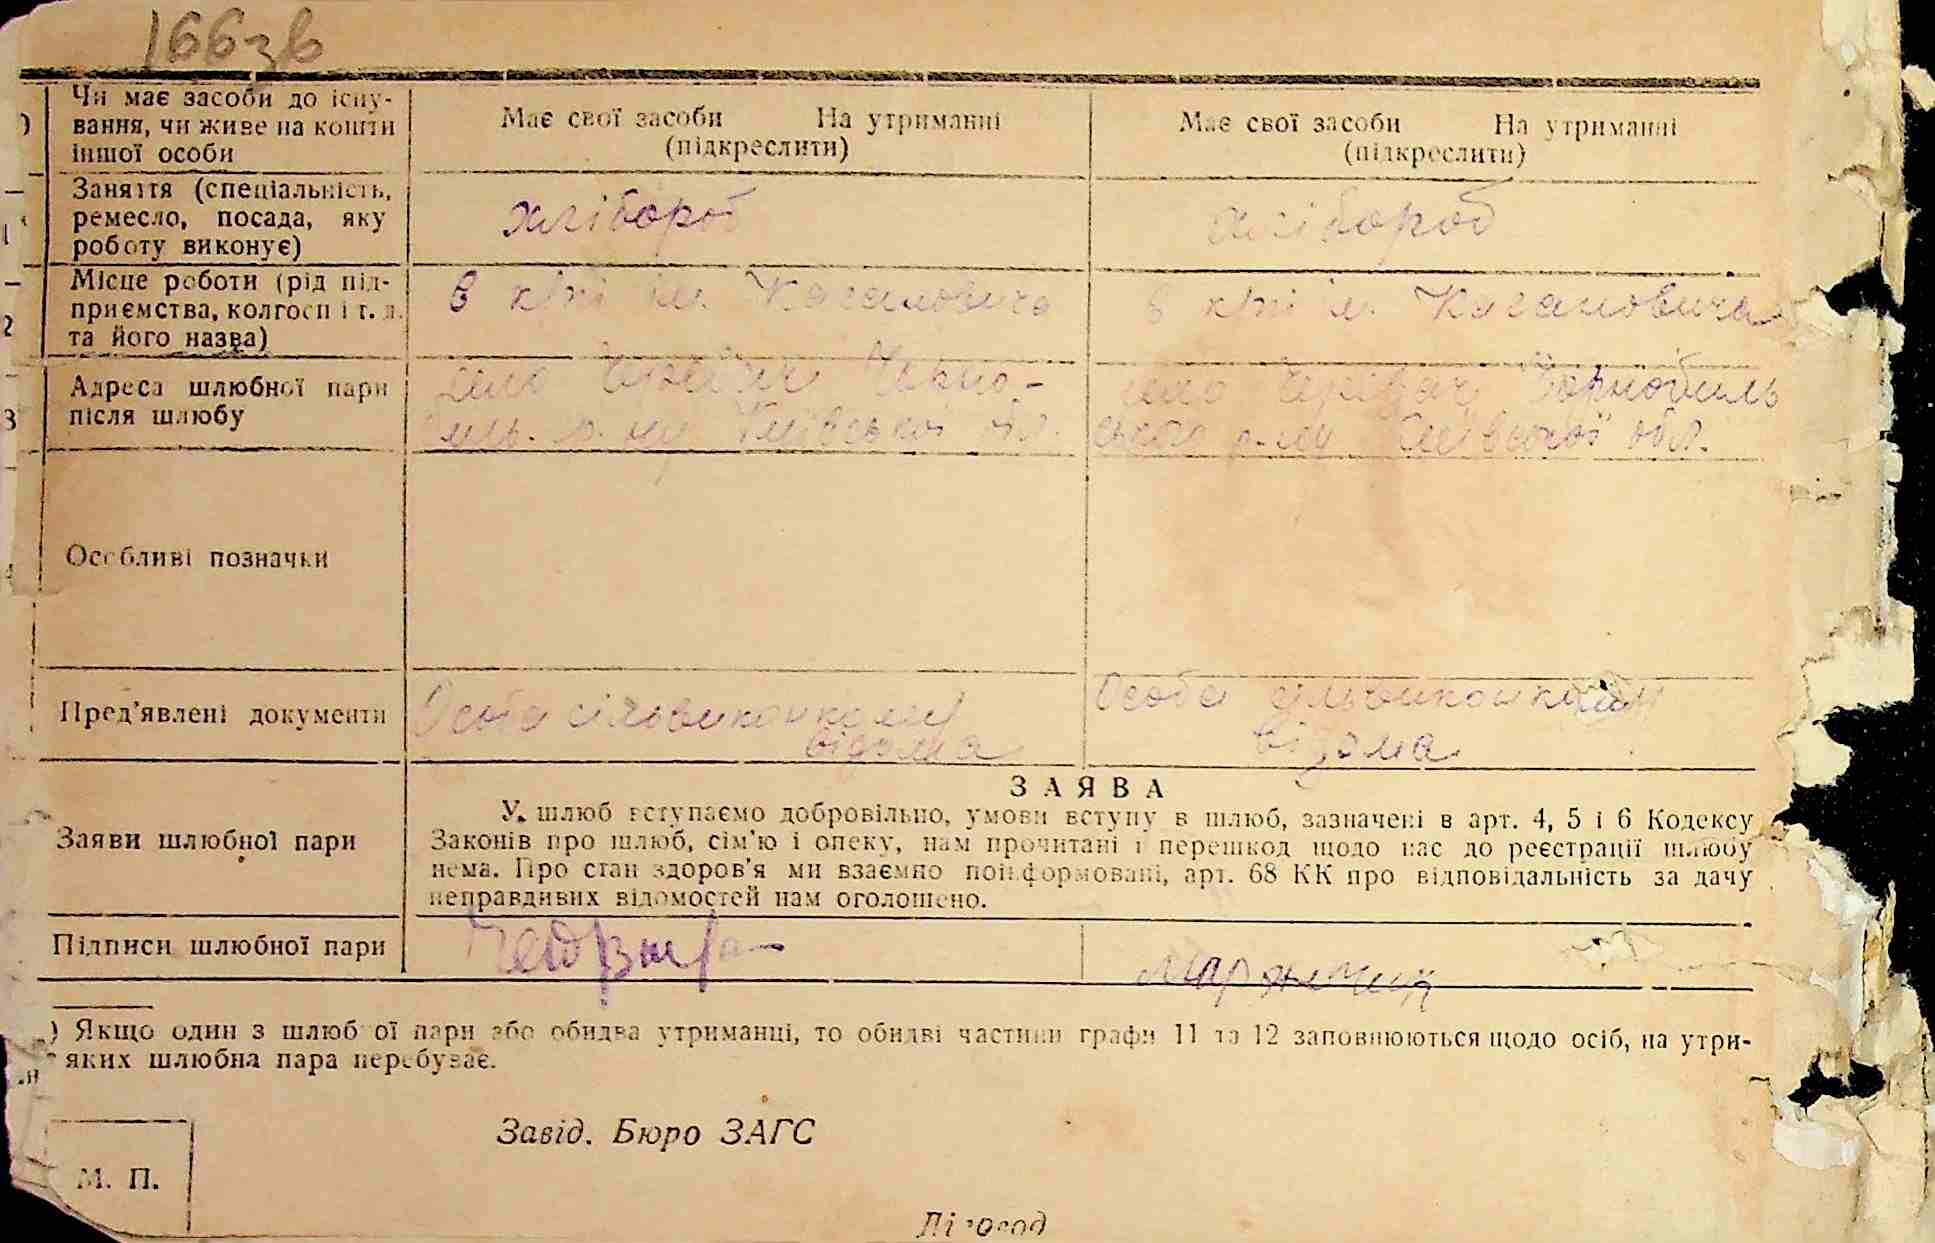 166зв
Чи має засоби до існу-
вання, чи живе на кошти
іншої особи
Має свої засоби На утриманні
(підкреслити)
Має свої засоби На утриманні
(підкреслити)
Заняття (спеціальність,
ремесло, посада, яку
роботу виконує)
хлібороб
хлібороб
Місце роботи (рід під-
приємства, колгосп і т. п.
та його назва)
в к/пі ім. Кагановича
в к/пі ім. Кагановича
Адреса шлюбної пари
після шлюбу
село Черевач Чорно-
р-ну Київської обл.
село Черевач Чорнобиль
ського р-ну Київської обл.
Особливі позначки
Пред'явлені документи
Особа сільвиконкому
відома
Особа сільвиконкому
відома
Заяви шлюбної пари
ЗАЯВА
У шлюб вступаємо добровільно, умови вступу в шлюб, зазначені в арт. 4, 5 і 6 Кодексу
Законів про шлюб, сім'ю і опеку, нам прочитані і перешкод щодо нас до реєстрації шлюбу
нема. Про стан здоров'я ми взаємно поінформовані, арт. 68 КК про відповідальність за дачу
неправдивих відомостей нам оголошено.
Підписи шлюбної пари
) Якщо один з шлюбної пари або обидва утриманці, то обидві частини графи 11 та 12 заповнюються щодо осіб, на утри-
яких шлюбна пара перебуває.
Завід. Бюро ЗАГС
М. П.